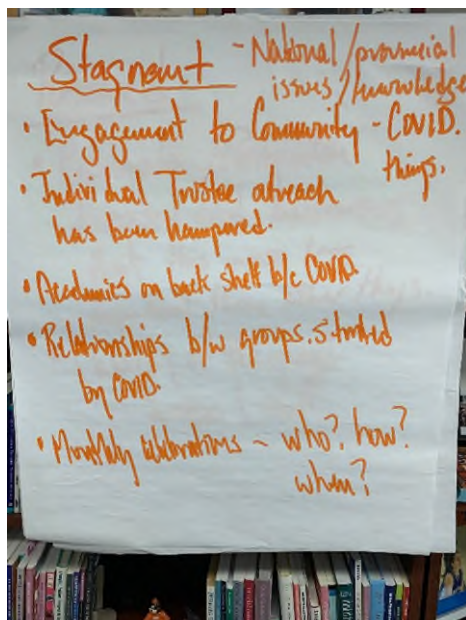 Stagnant - National/provincial
issues/knowledge
• Engagement to Community - COVID.
things.
• Individual Trustee outreach
has been hampered.
• Academics on back shelf b/c COVID.
• Relationships b/w groups. stunted
by COVID.
• Monthly celebrations - who? how?
when?